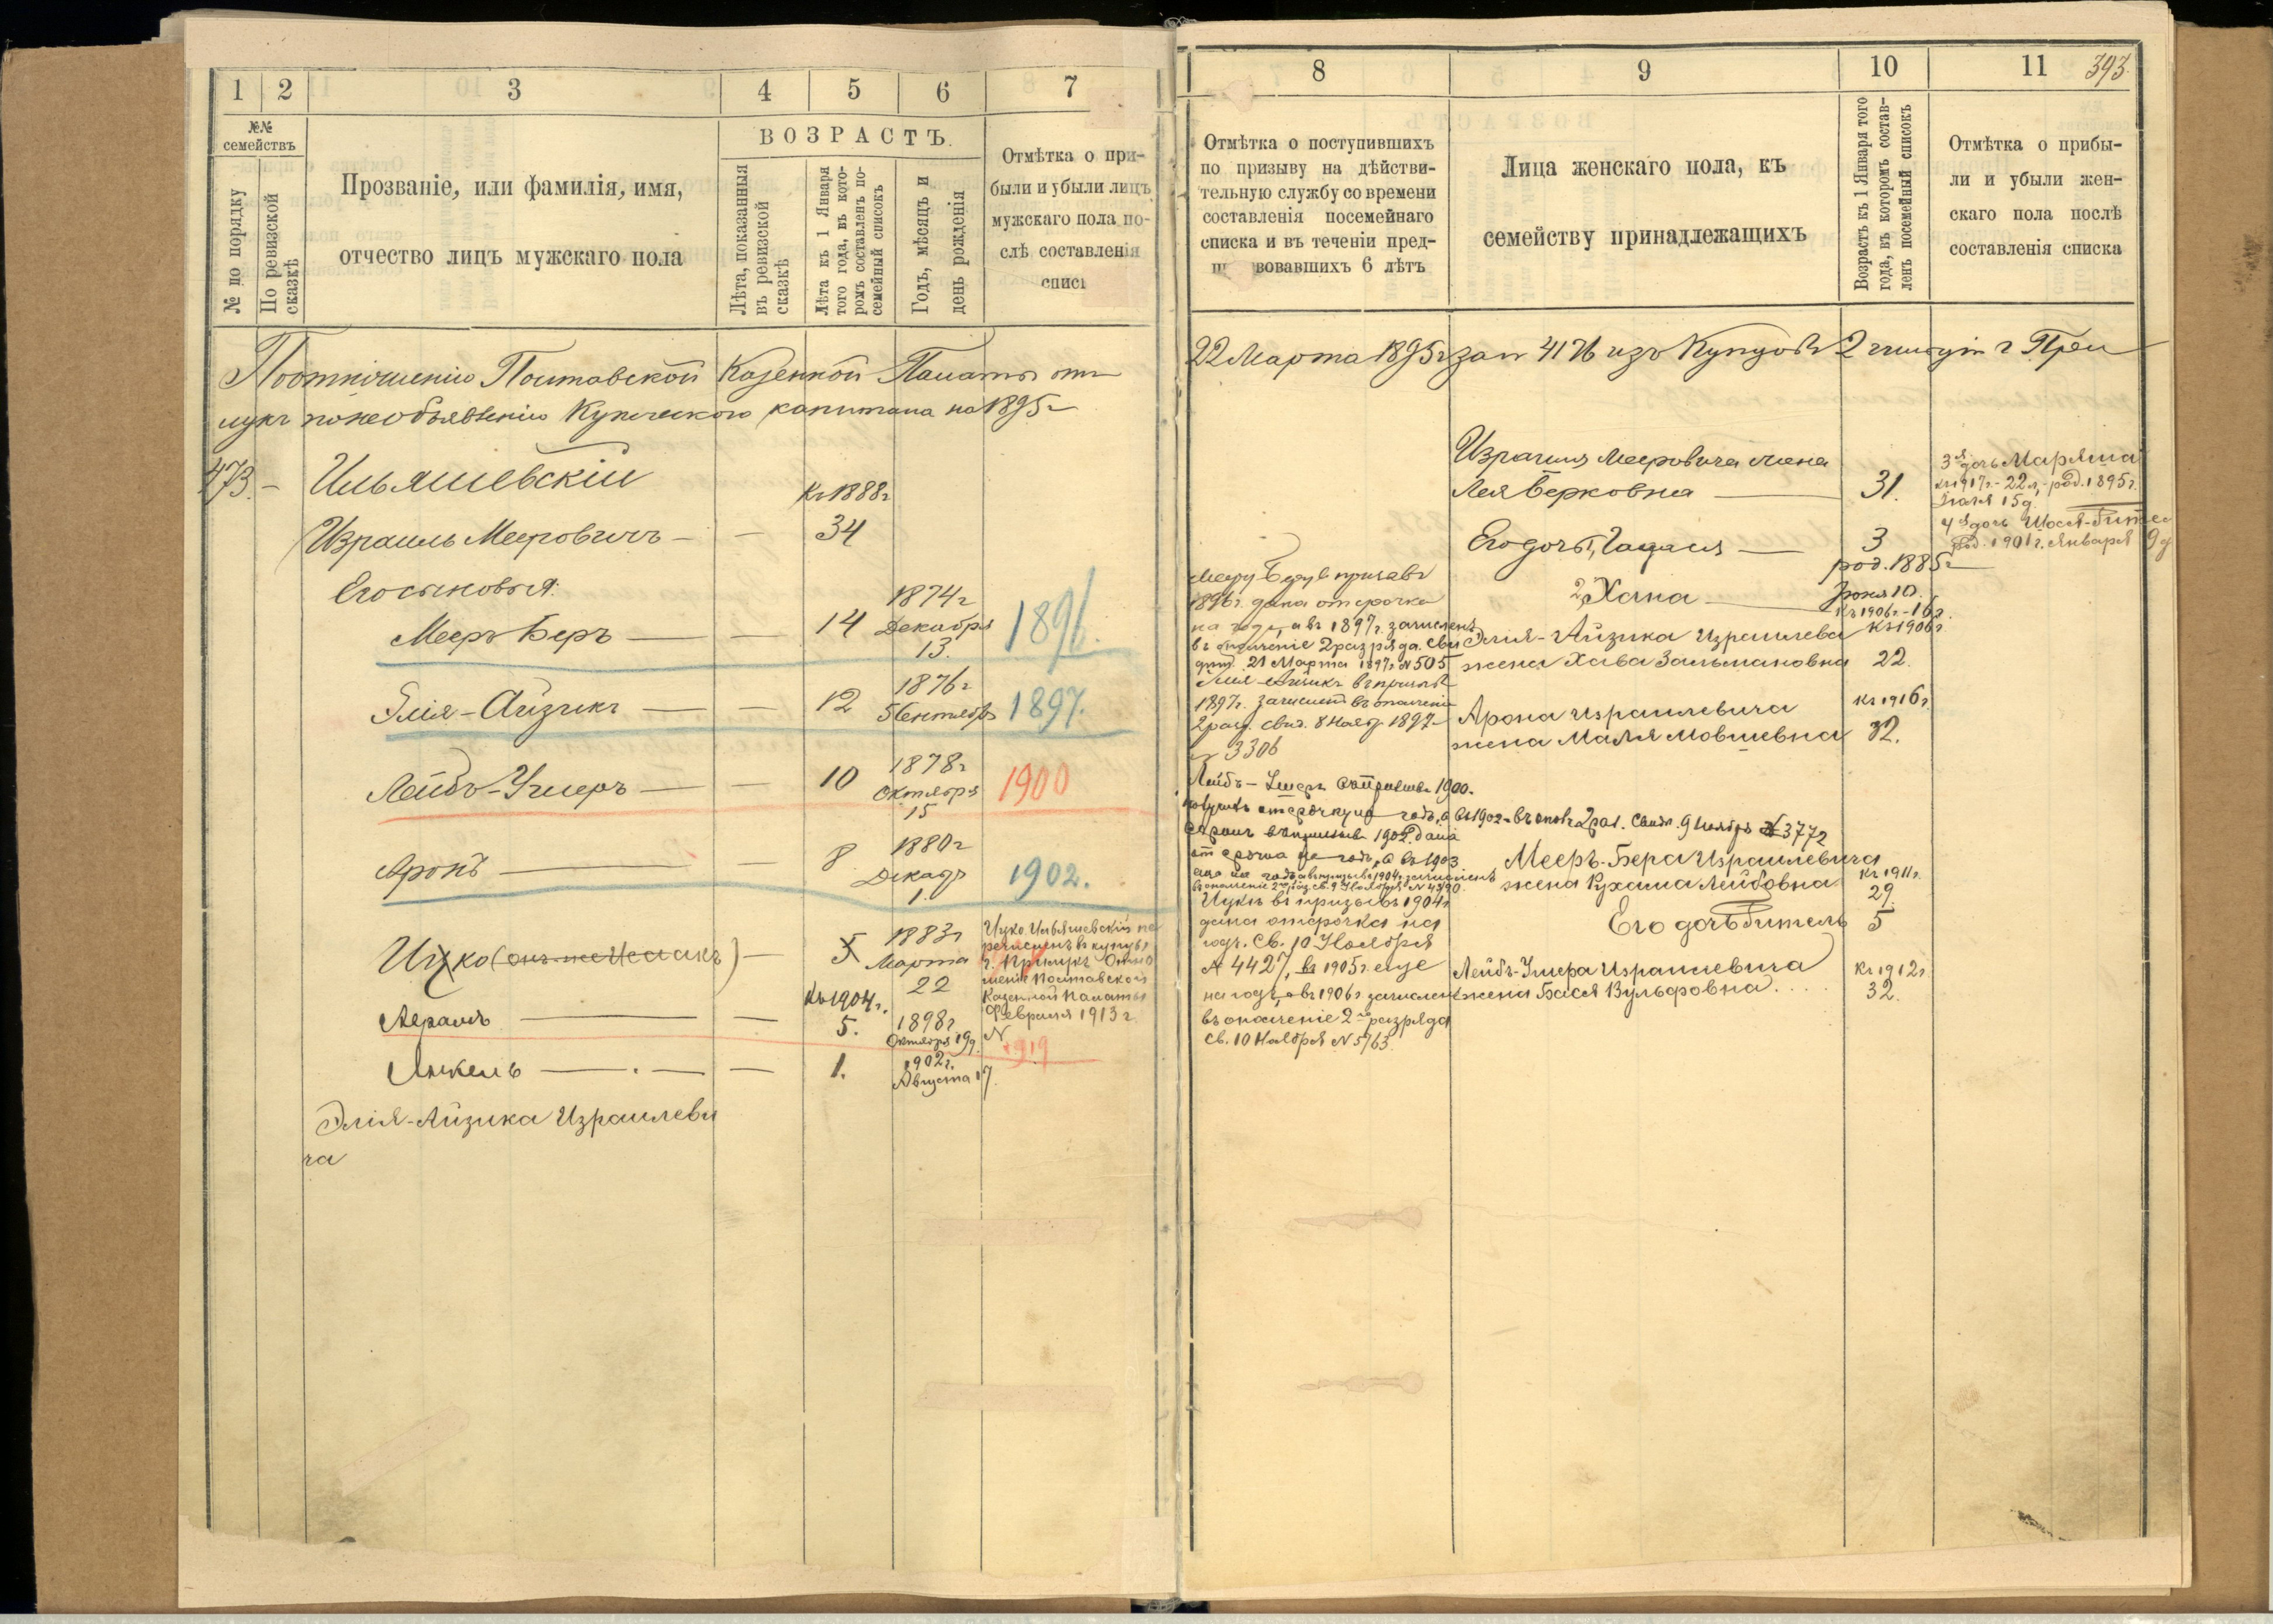 1 2 3 4 5 6 7
№№ семействъ
№ по порядку
По ревизской сказкѣ
Прозваніе, или фамилія, имя,
отчество лицъ мужскаго пола
ВОЗРАСТЪ.
Лѣта, показанныя
въ ревизской
сказкѣ
Лѣта къ 1 Января
того года, въ кото-
ромъ составленъ по-
семейный списокъ
Годъ, мѣсяцъ и
день рожденія
Отмѣтка о при-
были и убыли лицъ
мужскаго пола по-
слѣ составленія
По отношенію Полтавской Казенной Палаты отъ
лукъ по необъявленію Купеческого капитала на 1895 г
473. – Ильяшевскій
Къ 1888 г
Израиль Мееровичъ – – 34
Его сыновья:
Мееръ Беръ — — 14
1874 г
Декабря
13.
1896.
Элія-Айзикъ — — 12
1876 г
5 Сентябр
1897.
Лейбъ-Ушеръ — — 10
1878 г
Октября
15
1900
Аронъ — — 8
1880 г
Декабр
1.
1902.
Ицко (онъ же Исаакъ) — 5
1883 г
Марта
22
Ицко Ильяшевскій пе
речисленъ въ купцы
г. Прилукъ Отно
шеніе Полтавской
Казенной Палаты
Февраля 1913 г.
N
Къ 1904 г.
Абрамъ — — 5.
1898 г.
Октября 19 д.
1919
Янкель — . — — 1.
1902 г.
Августа 17.
Элія-Айзика Израилеви
ча
8 9 10 11 393.
Отмѣтка о поступившихъ
по призыву на дѣйстви-
тельную службу со времени
составленія посемейнаго
списка и въ теченіи пред-
вовавшихъ 6 лѣтъ
Лица женскаго пола, къ
семейству принадлежащихъ
Возрастъ къ 1 Января того
года, въ которомъ состав-
ленъ посемейный списокъ
Отмѣтка о прибы-
ли и убыли жен-
скаго пола послѣ
составленія списка
22 Марта 1895 г за N 4176 изъ Купцовъ 2 гильдіи г При
Израиля Мееровича жена
Лея Берковна — 31.
3я дочь Маряша
къ 1917 г. - 22 л, - род. 1895 г.
15 д.
Его дочь 1, — 3
4я дочь
род. 1901 г. Января 9 д
род. 1885 г
2, Хана —
Іюня 10.
Къ 1906 г. - 16 л.
Мееру Беру въ призывъ
1896 г. дана отсрочка
на годъ, а въ 1897 г. зачисленъ
въ ополченіе 2 разряда. Сви
дѣт. 21 Марта 1897 г. N 505
Элія-Айзика Израилева
Къ 1906 г
жена Хава Зальмановна 22.
Элія-Айзикъ въ призывъ
1897 г. зачисленъ въ ополченіе
2 разр. Свид. 8 Нояб. 1897 г
N 3306
Арона Израилевича
Къ 1916 г.
жена Маля Мовшевна 32.
Лейбъ-Ушеръ въ 1900.
получилъ отсрочку на годъ, а въ 1902 г въ опол. 2 раз. Свидѣт. 9 Ноября N 3772
Аронъ въ призывъ 1902 г. дана
отсрочка на годъ, а въ 1903
еще на годъ, а въ призывѣ 1904 г. зачисленъ
въ ополченіе 2го раз. св. 9 Ноября N 4390.
Мееръ-Бера Израилевича
жена Рухама Лейбовна.
Къ 1911 г.
29.
Его дочь Битель 5
Ицкѣ въ призывъ 1904 г
дана отсрочка на
годъ. Св. 10 Ноября
N 4427, въ 1905 г. еще
на годъ, а въ 1906 г зачисленъ
въ ополченіе 2го разряда
Св. 10 Ноября N 5763.
Лейбъ-Ушера Израилевича
жена Бася Вульфовна. . . .
Къ 1912 г.
32.